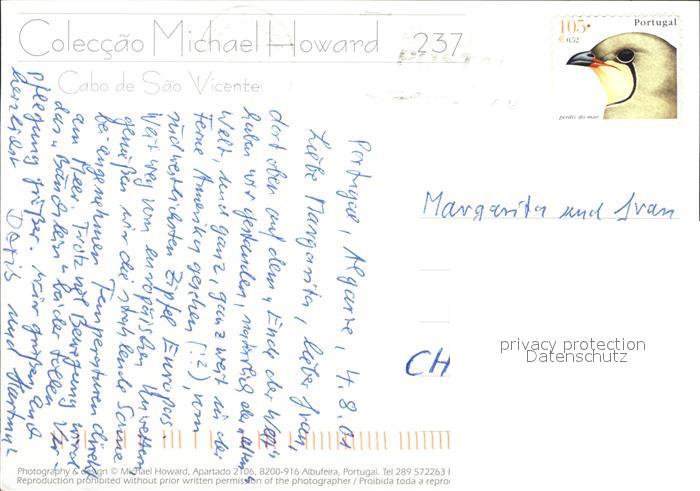 Colecção Michael Howard 237
Cabo de São Vicente
105-
€0,52
Portugal
perdiz do mar
Portugal, Algarve, 4.8.01
Liebe Margarita, lieber Ivan,
dort oben auf dem „Ende der Welt"
haben wir gestanden, am Ende der alten
Welt, und ganz, ganz weit in der
Ferne Amerika gesehen (!?), vom
südwestlichsten Zipfel Europas.
Weit weg vom europäischen Unwetter
genießen wir die strahlende Sonne
bei angenehmen Temperaturen direkt
am Meer. Trotz viel Bewegung wird
das „Bäuchlein" bei der tollen Ver-
pflegung größer. Wir grüßen Euch
herzlichst Doris und Hartmut
Margarita und Ivan
CH
privacy protection
Datenschutz
Photography & design © Michael Howard, Apartado 2106, 8200-916 Albufeira, Portugal. Tel 289 572263
Reproduction prohibited without prior written permission of the photographer / Proibida toda a repro